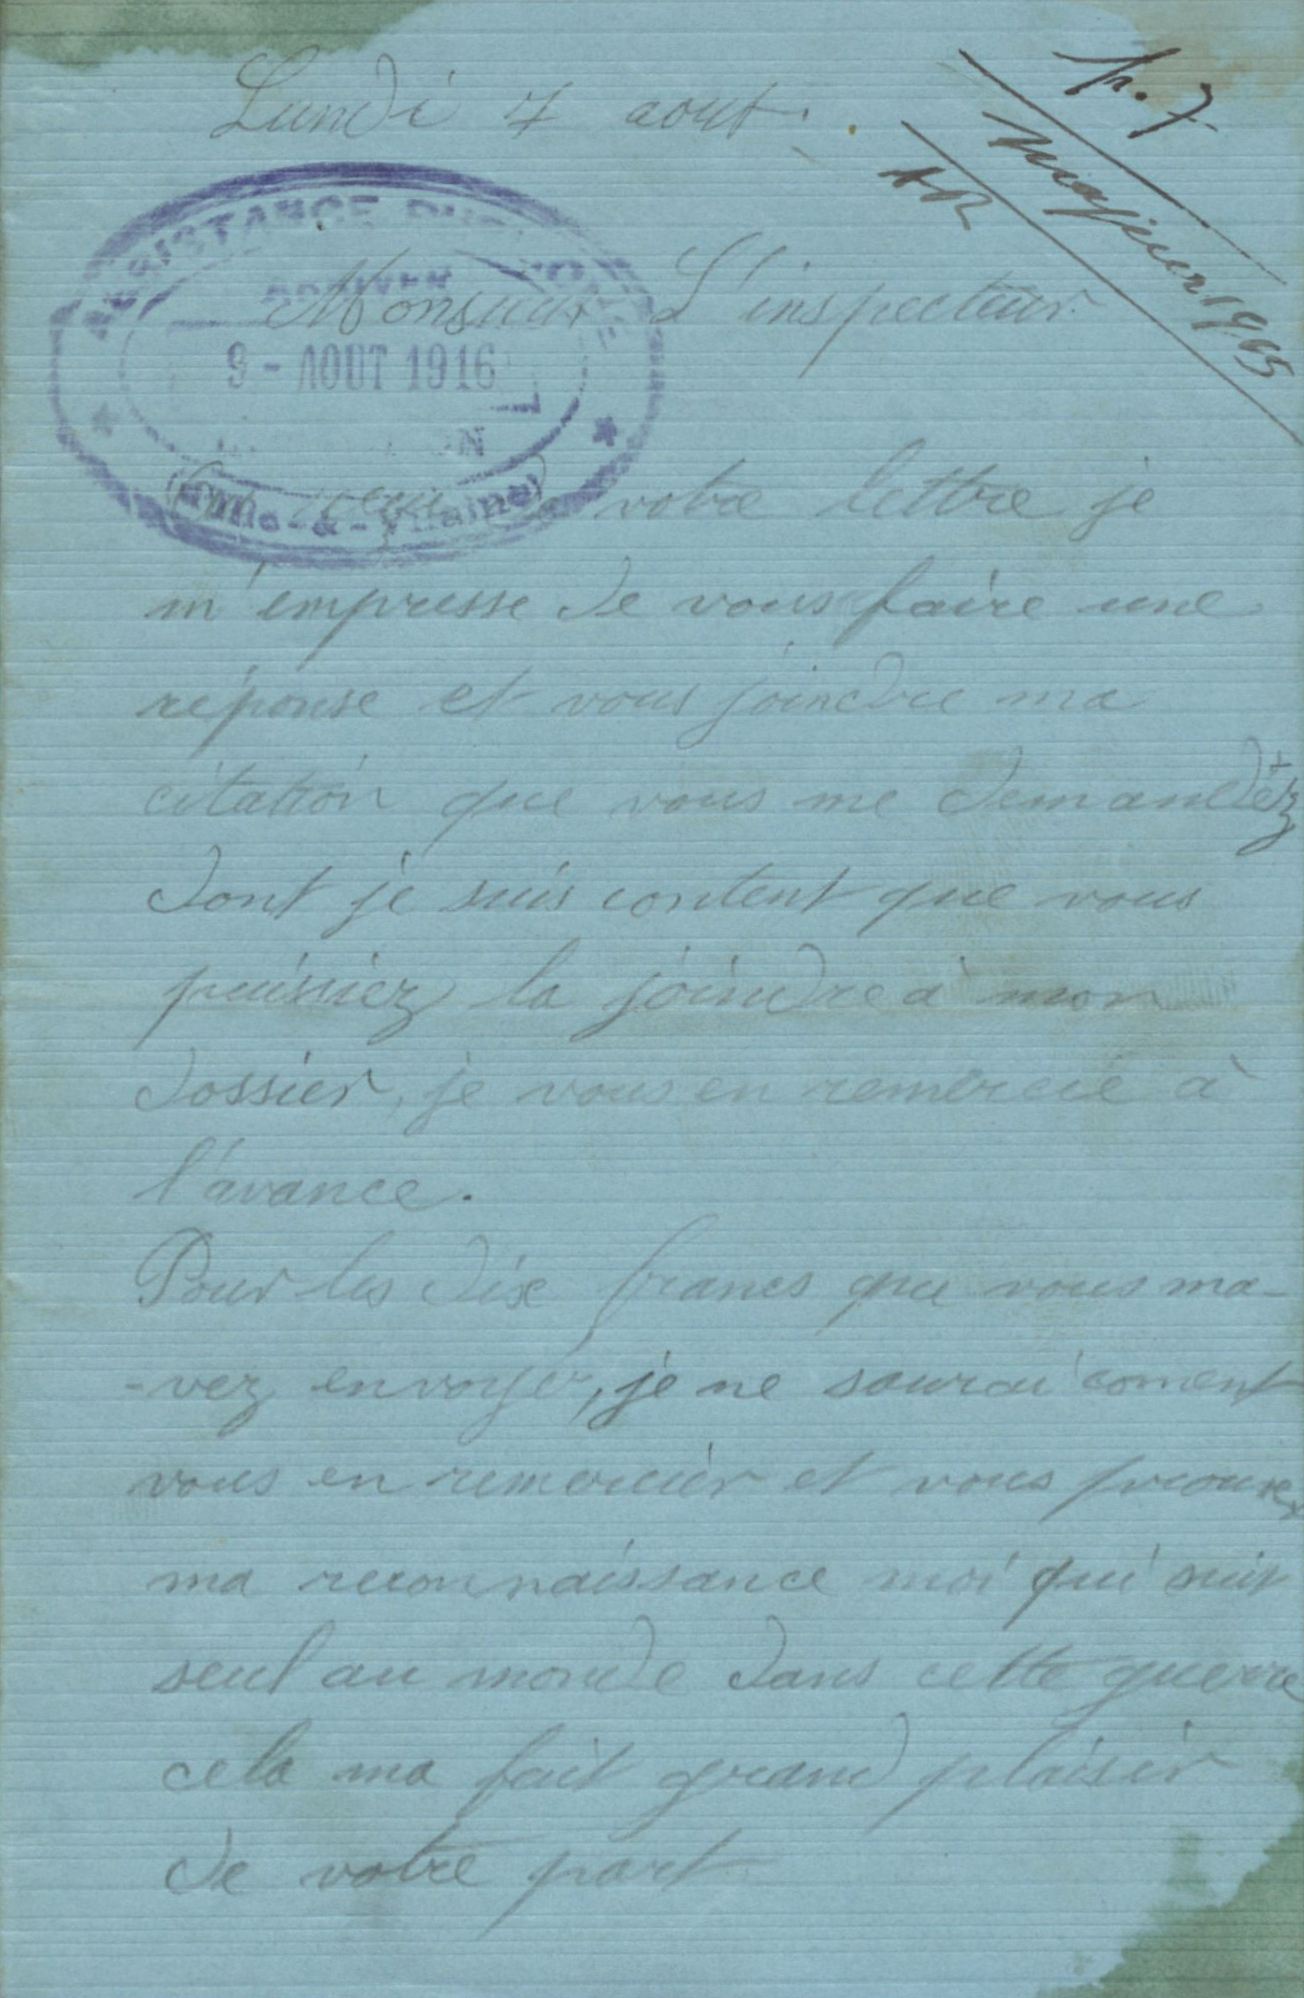 Lundi 7 aout.
h. 7
majeur 1965
AR
ASSISTANCE
ARRIVEE
9 - AOUT 1916
(Ille-&-Vilaine)
Monsieur L'inspecteur
reçu votre lettre je
m'empresse de vous faire une
réponse et vous joindre ma
citation que vous me demandez
dont je suis content que vous
puissiez la joindre à mon
dossier, je vous en remercie à
l'avance.
Pour les dix francs que vous ma-
-vez envoyer, je ne saurai coment
vous en remercier et vous prouver
ma reconnaissance moi qui suis
seul au monde dans cette guerre
cela ma fait grand plaisir
de votre part